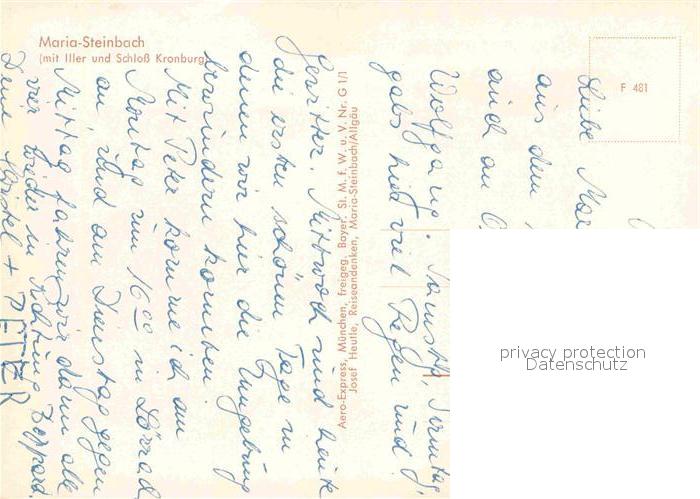 Maria-Steinbach
(mit Iller und Schloß Kronburg)
F 481
Aero-Express, München, freigeg. Bayer. St. M. f. W. u. V. Nr. G 1/1
Josef Heutle, Reiseandenken, Maria-Steinbach/Allgäu
privacy protection
Datenschutz
Liebe
aus dem
auch an
Wolfgang. Samstg, Sonntag,
gabs hier viel Regen und
Gewitter. Mittwoch und heute
die ersten schönen Tage in
denen wir hier die Umgebung
bewundern konnten.
Mit Peter komme ich am
Montag um 16 00 in Lörrach
an und am Dienstag gegen
Mittag fahren wir dann alle
vier wieder in Richtung Boppard.
Deine Christel + PETER